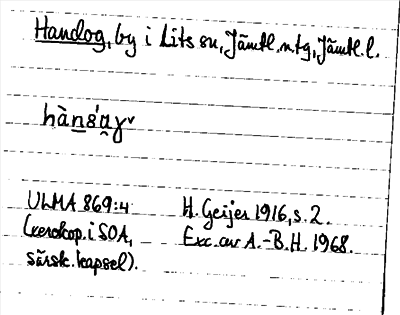 Handog, by i Lits sn, Jämtl. n. tg, Jämtl. l.
ULMA 869:4 H. Geijer 1916, s. 2.
(xeroskop. i SOA, Exc. av A.-B.H. 1968.
särsk. kapsel).